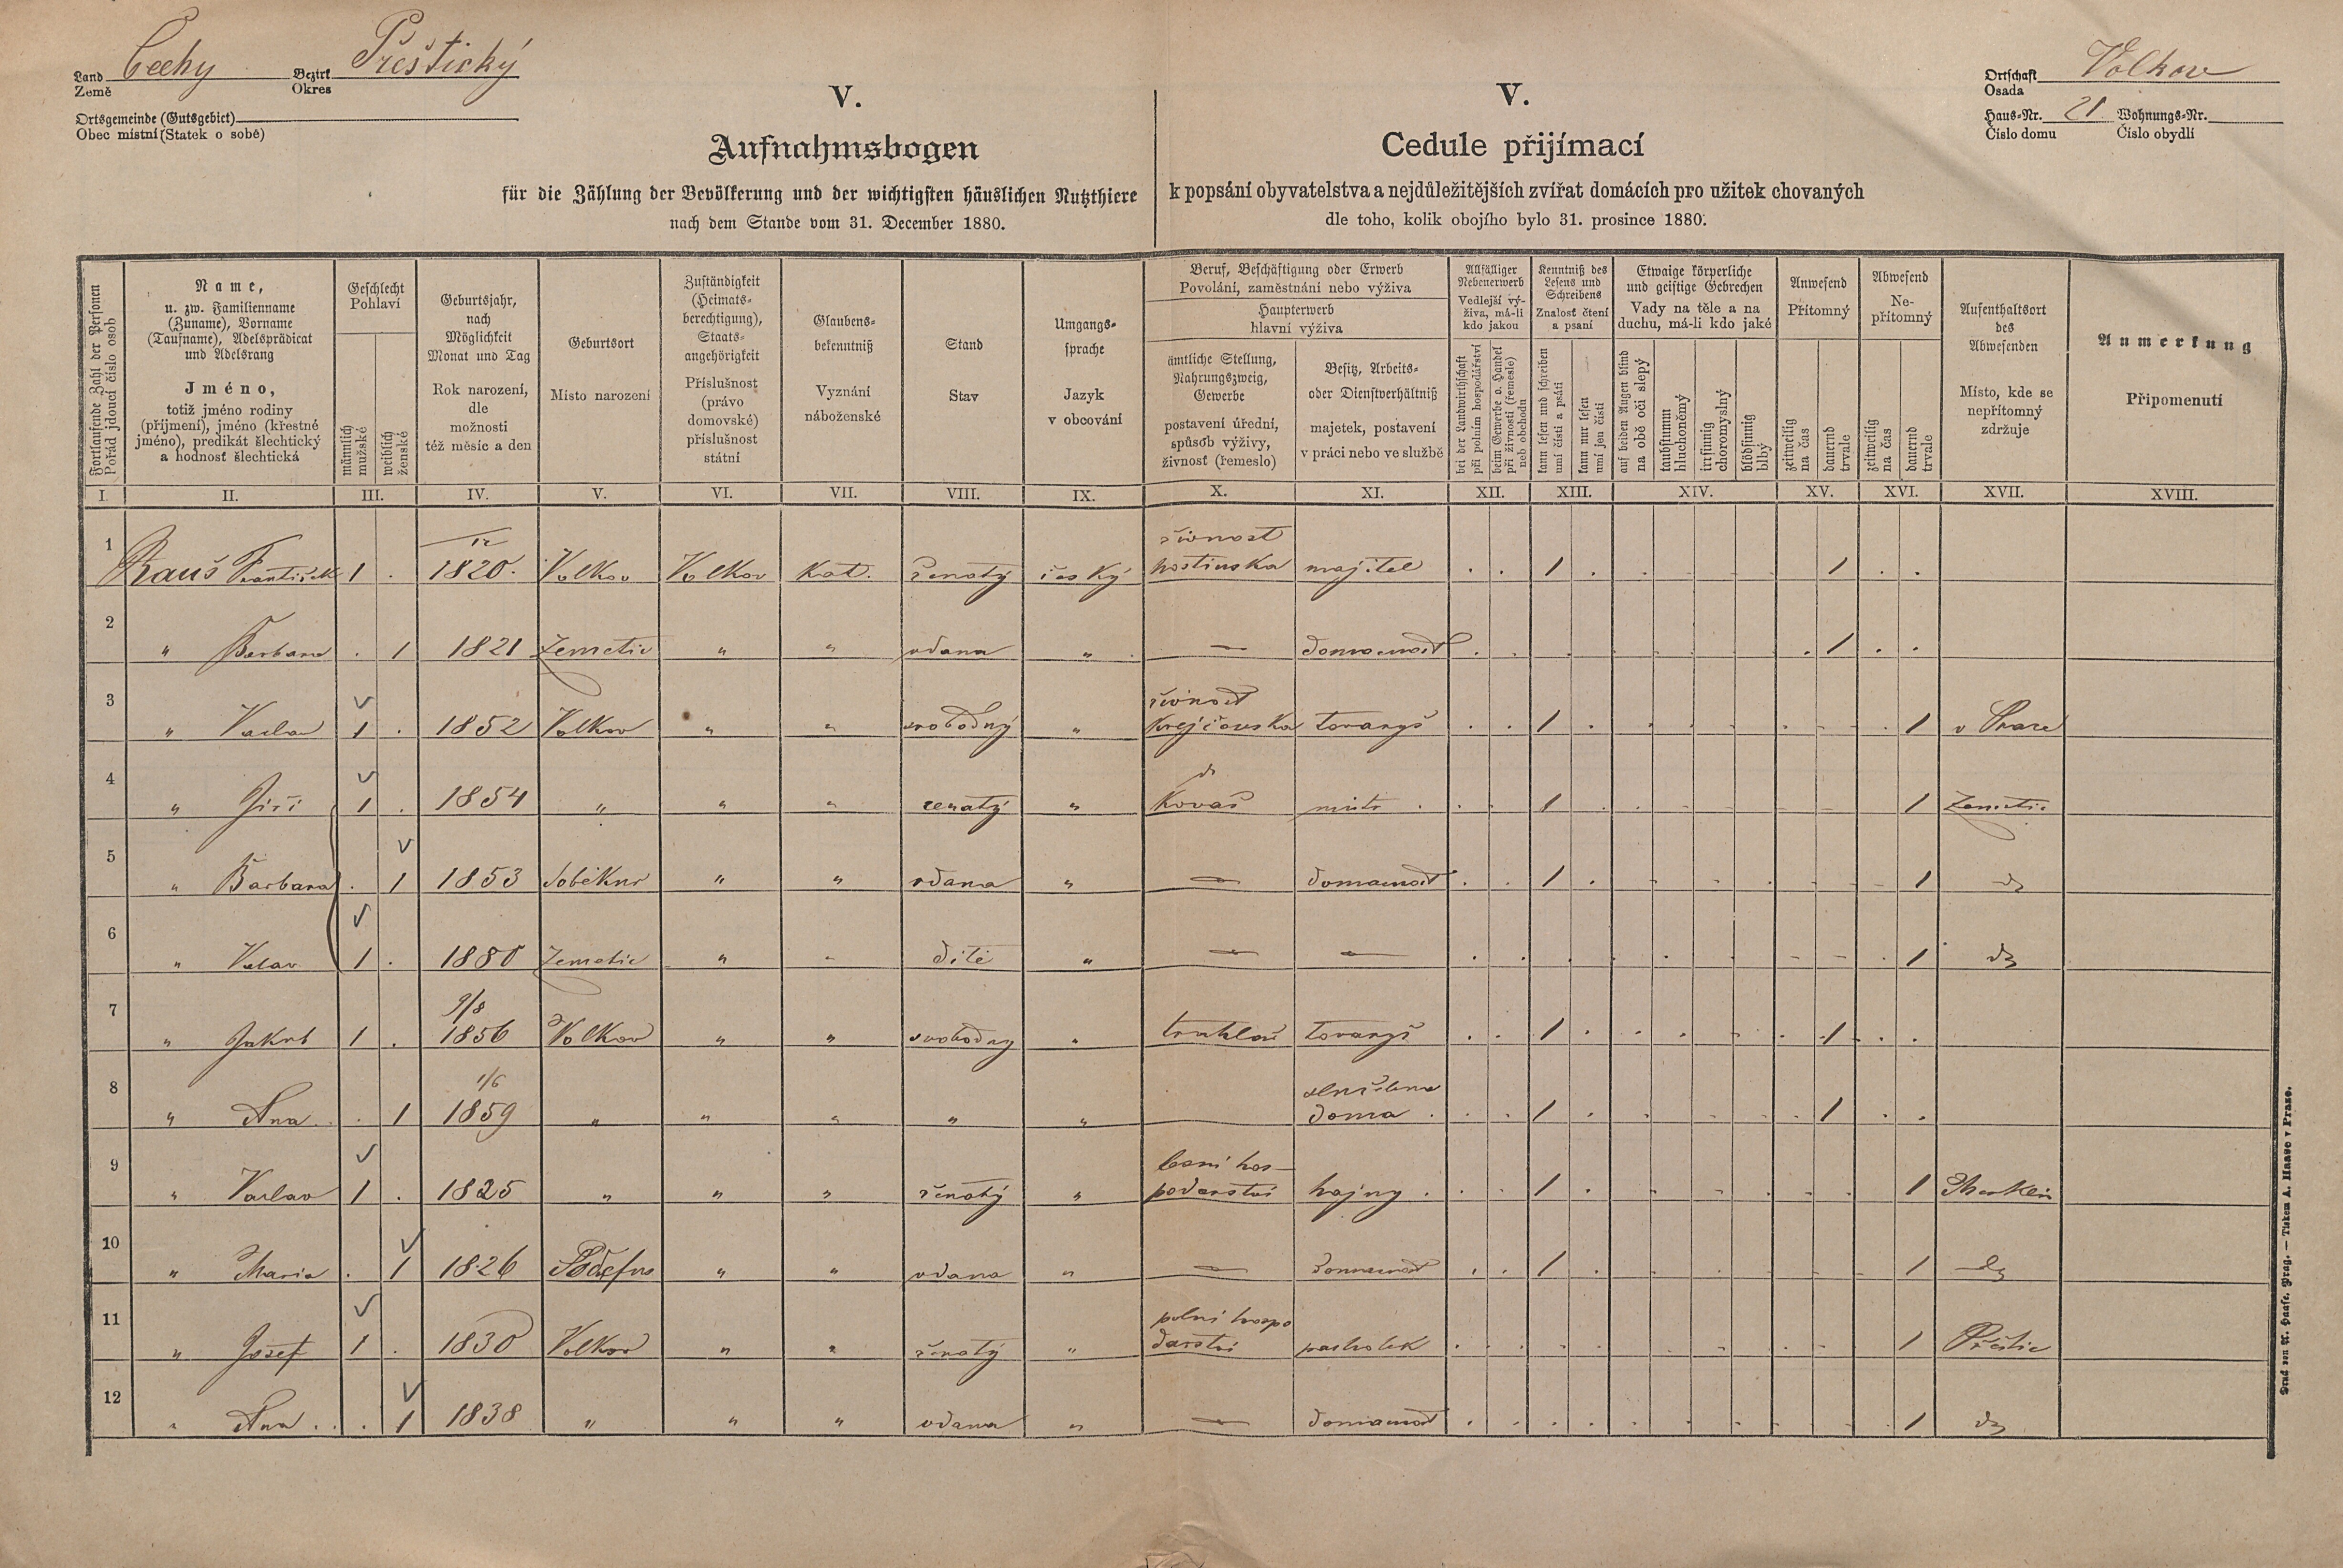 Land Čechy Bezirk Přeštický
Země Okres
Ortsgemeinde (Gutsgebiet)
Obec místní (Statek o sobě)
Ortschaft Volkov
Osada
Haus-Nr. 21 Wohnungs-Nr.
Číslo domu Číslo obydlí
V.
Aufnahmsbogen
für die Zählung der Bevölkerung und der wichtigsten häuslichen Nutzthiere
nach dem Stande vom 31. December 1880.
V.
Cedule přijímací
k popsání obyvatelstva a nejdůležitějších zvířat domácích pro užitek chovaných
dle toho, kolik obojího bylo 31. prosince 1880.
Fortlaufende Zahl der Personen
Pořád jdoucí číslo osob
Name,
u. zw. Familienname
(Zuname), Vorname
(Taufname), Adelsprädicat
und Adelsrang
Jméno,
totiž jméno rodiny
(příjmení), jméno (křestné
jméno), predikát šlechtický
a hodnost šlechtická
Geschlecht
Pohlaví
männlich
mužské
weiblich
ženské
Geburtsjahr,
nach
Möglichkeit
Monat und Tag
Rok narození,
dle
možnosti
též měsíc a den
Geburtsort
Místo narození
Zuständigkeit
(Heimats-
berechtigung),
Staats-
angehörigkeit
Příslušnost
(právo
domovské)
příslušnost
státní
Glaubens-
bekenntniß
Vyznání
náboženské
Stand
Stav
Umgangs-
sprache
Jazyk
v obcování
Beruf, Beschäftigung oder Erwerb
Povolání, zaměstnání nebo výživa
Haupterwerb
hlavní výživa
ämtliche Stellung,
Nahrungszweig,
Gewerbe
postavení úřední,
spůsob výživy,
živnost (řemeslo)
Besitz, Arbeits-
oder Dienstverhältniß
majetek, postavení
v práci nebo ve službě
Allfälliger
Nebenerwerb
Vedlejší vý-
živa, má-li
kdo jakou
bei der Landwirthschaft
při polním hospodářství
beim Gewerbe o. Handel
při živnosti (řemesle)
neb obchodu
Kenntniß des
Lesens und
Schreibens
Znalost čtení
a psaní
kann lesen und schreiben
umí čísti a psáti
kann nur lesen
umí jen čísti
Etwaige körperliche
und geistige Gebrechen
Vady na těle a na
duchu, má-li kdo jaké
auf beiden Augen blind
na obě oči slepý
taubstumm
hluchoněmý
irrsinnig
choromyslný
blödsinnig
blbý
Anwesend
Přítomný
zeitweilig
na čas
dauernd
trvale
Abwesend
Ne-
přítomný
zeitweilig
na čas
dauernd
trvale
Aufenthaltsort
des
Abwesenden
Místo, kde se
nepřítomný
zdržuje
Anmerkung
Připomenutí
I. II. III. IV. V. VI. VII. VIII. IX. X. XI. XII. XIII. XIV. XV. XVI. XVII. XVIII.
živnost
1 Rauš František 1 . 1820. Volkov Volkov kat. ženatý český hostinska majitel . . 1 . 1 . .
2 " Barbara . 1 1821 Zemetic " " vdana " — domacnost . . . 1 . .
živnost
3 " Vaclav 1 . 1852 Volkov " " svobodný " krejčovska tovaryš . . 1 . 1 v Praze
4 " Jiří 1 . 1854 " " " ženatý " Kovař mistr . . 1 . 1 Zemetic
5 " Barbara . 1 1853 " " vdana " — domacnost . . 1 . 1 dto
6 " Vaclav 1 . 1880 Zemetic " " dítě " — — . . 1 dto
9/8
7 " Jakub 1 . 1856 Volkov " " svobodny " truhlař tovaryš . . 1 . 1 . .
1/6
8 " Ana . 1 1859 " " " " " doma . . 1 . 1 . .
lesni hos-
9 " Vaclav 1 . 1825 " " " ženatý " podarstvi hajny . . 1 . 1 Merklin
10 " Maria . 1 1826 " " vdana " — domacnost . . 1 . 1 dto
polni hospo
11 " Josef 1 . 1830 Volkov " " ženatý " darstvi pacholek . . 1 Přeštic
12 " Ana . 1 1838 " " " vdana " — domacnost . . 1 dto
Druck von A. Haase, Prag. — Tiskem A. Haase v Praze.